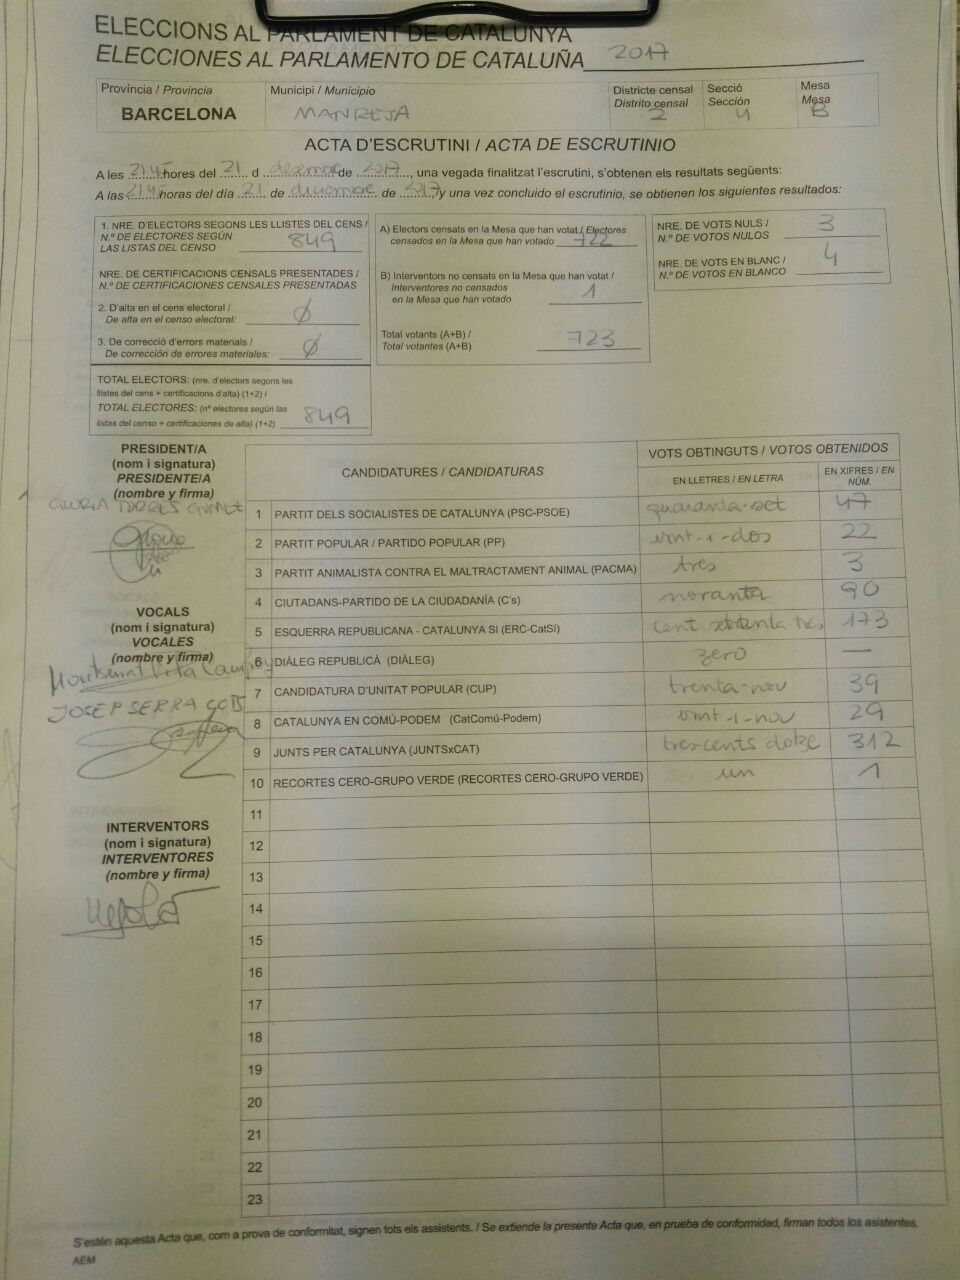 ELECCIONS AL PARLAMENT DE CATALUNYA
ELECCIONES AL PARLAMENTO DE CATALUÑA 2017
Província / Provincia
BARCELONA
Municipi / Municipio
MANRESA
Districte censal
Distrito censal
2
Secció
Sección
4
Mesa
Mesa
B
ACTA D'ESCRUTINI / ACTA DE ESCRUTINIO
A les 21'45 hores del 21 d desembre de 2017, una vegada finalitzat l'escrutini, s'obtenen els resultats següents:
A las 21'45 horas del día 21 de diciembre de 2017, y una vez concluido el escrutinio, se obtienen los siguientes resultados:
1. NRE. D'ELECTORS SEGONS LES LLISTES DEL CENS /
N.º DE ELECTORES SEGÚN
LAS LISTAS DEL CENSO 849
NRE. DE CERTIFICACIONS CENSALS PRESENTADES /
N.º DE CERTIFICACIONES CENSALES PRESENTADAS
2. D'alta en el cens electoral /
De alta en el censo electoral: Ø
3. De correcció d'errors materials /
De corrección de errores materiales: Ø
TOTAL ELECTORS: (nre. d'electors segons les
llistes del cens + certificacions d'alta) (1+2) /
TOTAL ELECTORES: (nº electores según las
listas del censo + certificaciones de alta) (1+2) 849
A) Electors censats en la Mesa que han votat / Electores
censados en la Mesa que han votado 722
B) Interventors no censats en la Mesa que han votat /
Interventores no censados
en la Mesa que han votado 1
Total votants (A+B) /
Total votantes (A+B) 723
NRE. DE VOTS NULS /
N.º DE VOTOS NULOS 3
NRE. DE VOTS EN BLANC /
N.º DE VOTOS EN BLANCO 4
PRESIDENT/A
(nom i signatura)
PRESIDENTE/A
(nombre y firma)
GLORIA TORRES
VOCALS
(nom i signatura)
VOCALES
(nombre y firma)
Montserrat
JOSEP SERRA
INTERVENTORS
(nom i signatura)
INTERVENTORES
(nombre y firma)
CANDIDATURES / CANDIDATURAS
VOTS OBTINGUTS / VOTOS OBTENIDOS
EN LLETRES / EN LETRA
EN XIFRES / EN NÚM.
1 PARTIT DELS SOCIALISTES DE CATALUNYA (PSC-PSOE) quaranta-set 47
2 PARTIT POPULAR / PARTIDO POPULAR (PP) vint-i-dos 22
3 PARTIT ANIMALISTA CONTRA EL MALTRACTAMENT ANIMAL (PACMA) tres 3
4 CIUTADANS-PARTIDO DE LA CIUDADANÍA (C's) noranta 90
5 ESQUERRA REPUBLICANA - CATALUNYA SI (ERC-CatSí) cent setenta-tres 173
6 DIÀLEG REPUBLICÀ (DIÀLEG) zero —
7 CANDIDATURA D'UNITAT POPULAR (CUP) trenta-nou 39
8 CATALUNYA EN COMÚ-PODEM (CatComú-Podem) vint-i-nou 29
9 JUNTS PER CATALUNYA (JUNTSxCAT) tres-cents dotze 312
10 RECORTES CERO-GRUPO VERDE (RECORTES CERO-GRUPO VERDE) un 1
11
12
13
14
15
16
17
18
19
20
21
22
23
S'estén aquesta Acta que, com a prova de conformitat, signen tots els assistents. / Se extiende la presente Acta que, en prueba de conformidad, firman todos los asistentes.
AEM